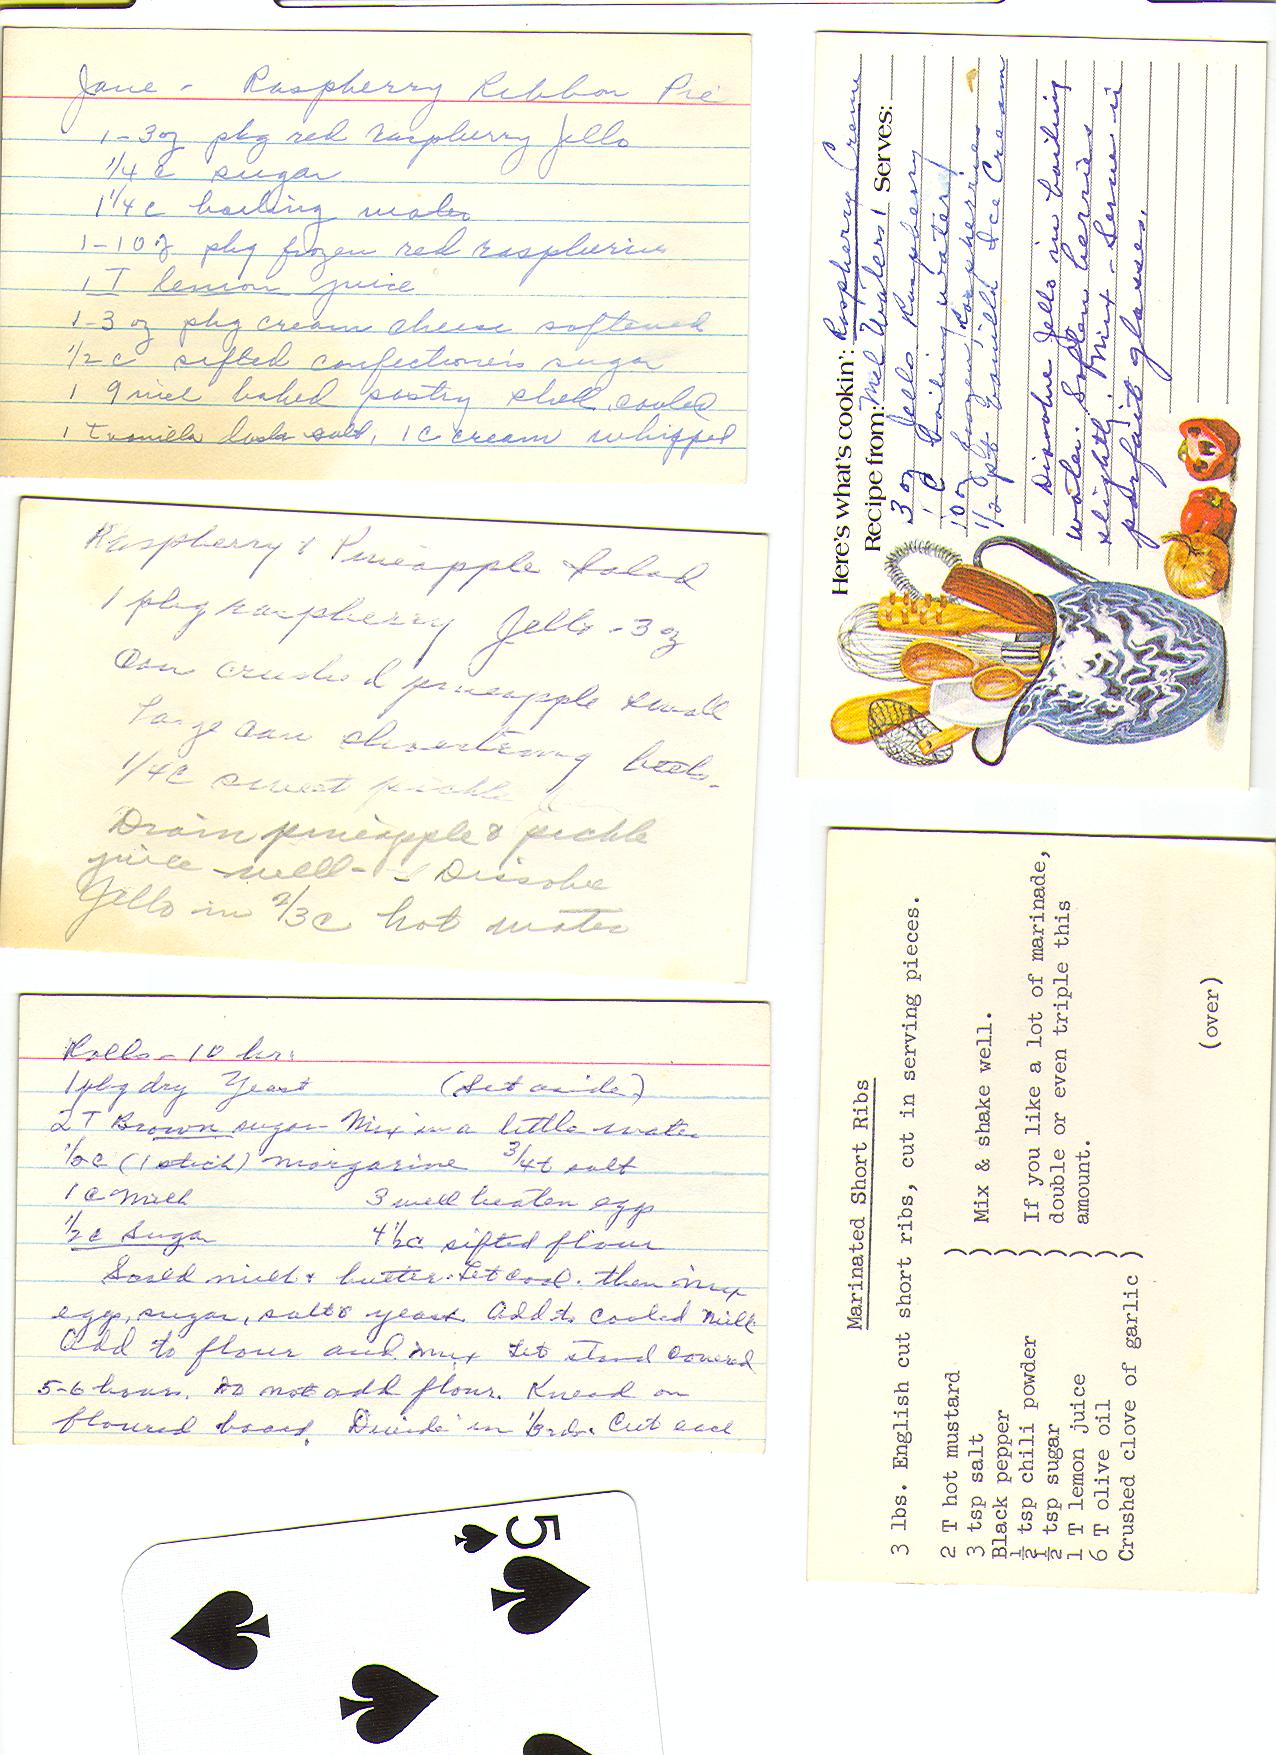 Jane - Raspberry Ribbon Pie
1-3oz pkg red raspberry Jello
1/4 c sugar
1 1/4 c boiling water
1-10oz pkg frozen red raspberries
1 T lemon juice
1-3 oz pkg cream cheese softened
1/2 c sifted confectioner's sugar
1 9 inch baked pastry shell, cooled
1 t vanilla dash salt, 1 c cream whipped
Raspberry & Pineapple Salad
1 pkg raspberry Jello - 3 oz
Can crushed pineapple small
Large can shoestring beets.
1/4 c sweet pickle
Drain pineapple & pickle
juice well - Dissolve
Jello in 2/3 c hot water
Rolls - 10 hr.
1 pkg dry Yeast (Set aside)
2 T Brown sugar - Mix in a little water
1/2 c (1 stick) margarine 3/4 t salt
1 c Milk 3 well beaten egg
1/2 c Sugar 4 1/2 c sifted flour
Scald milk & butter. Let cool. then mix
egg, sugar, salt & yeast. Add to cooled milk
Add to flour and mix Let stand covered
5-6 hours. Do not add flour. Knead on
floured board. Divide in 1/3rds. Cut each
5
Here's what's cookin': Raspberry Creme
Recipe from: Mel Walers Serves:
3 oz Jello Raspberry
1 C Boiling water
10 oz frozen raspberries
1/2 pt. Vanilla Ice Cream
Dissolve Jello in boiling
water. Soften berries
slightly. Mix - Serve in
parfait glasses.
Marinated Short Ribs
3 lbs. English cut short ribs, cut in serving pieces.
2 T hot mustard )
3 tsp salt ) Mix & shake well.
Black pepper )
½ tsp chili powder ) If you like a lot of marinade,
½ tsp sugar ) double or even triple this
1 T lemon juice ) amount.
6 T olive oil )
Crushed clove of garlic )
(over)